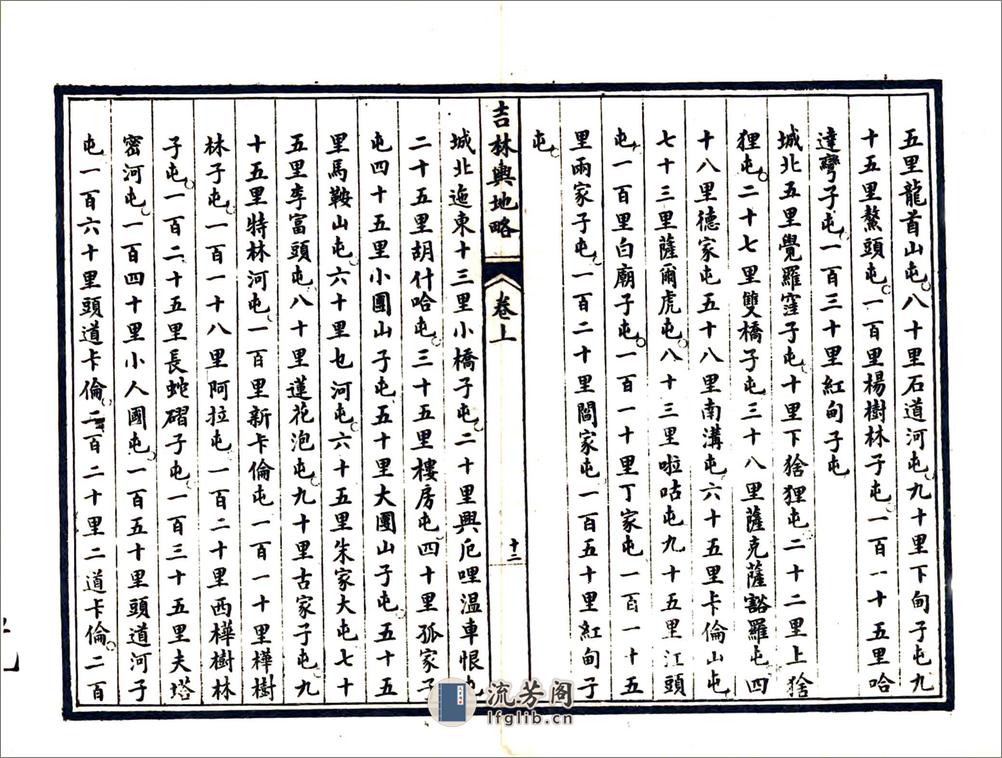 五里龍首山屯八十里石道河屯九十里下甸子屯九
十五里鰲頭屯一百里楊樹林子屯一百一十五里哈
達彎子屯一百三十里紅甸子屯
城北五里覺羅窪子屯十里下猞狸屯二十二里上猞
狸屯二十七里雙橋子屯三十八里薩克薩豁羅屯四
十八里德家屯五十八里南溝屯六十五里卡倫山屯
七十三里薩爾虎屯八十三里啦咕屯九十五里江頭
屯一百里白廟子屯一百一十里丁家屯一百一十五
里兩家子屯一百二十里閻家屯一百五十里紅甸子
屯
吉林輿地略
卷上
十二
城北迤東十三里小橋子屯二十里興戹哩溫車恨屯
二十五里胡什哈屯三十五里樓房屯四十里孤家子
屯四十五里小團山子屯五十里大團山子屯五十五
里馬鞍山屯六十里乜河屯六十五里朱家大屯七十
五里李富頭屯八十里蓮花泡屯九十里古家子屯九
十五里特林河屯一百里新卡倫屯一百一十里樺樹
林子屯一百一十八里阿拉屯一百二十里西樺樹林
子屯一百二十五里長蛇磖子屯一百三十五里夫塔
密河屯一百四十里小人國屯一百五十里頭道河子
屯一百六十里頭道卡倫二百二十里二道卡倫二百
流芳阁
lfglib.cn